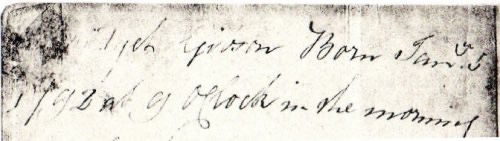 Gibson Born Janry 5
1792 at 9 OClock in the morning